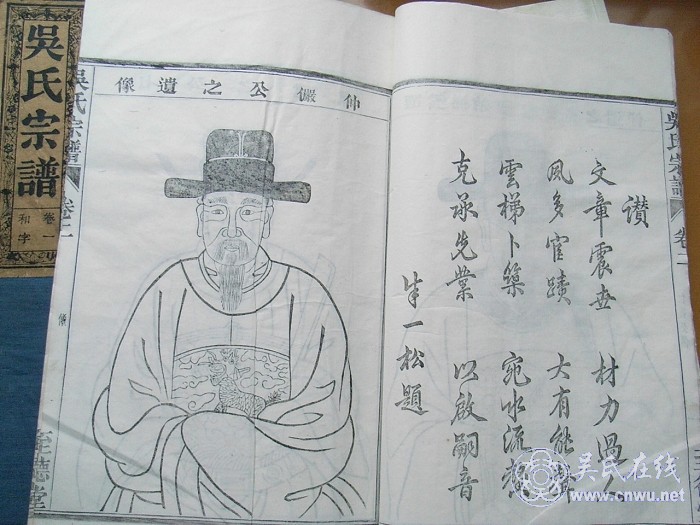 吳氏宗譜
卷一
和字
吳氏宗譜
卷二
像
至德堂
仲儼公之遺像
讚
文章震世 材力過人
風多宦蹟 大有能
雲梯卜築 宛水流芳
克承先業 以啟嗣音
一松題
吳氏宗譜
卷二
吴氏在线
www.cnwu.net